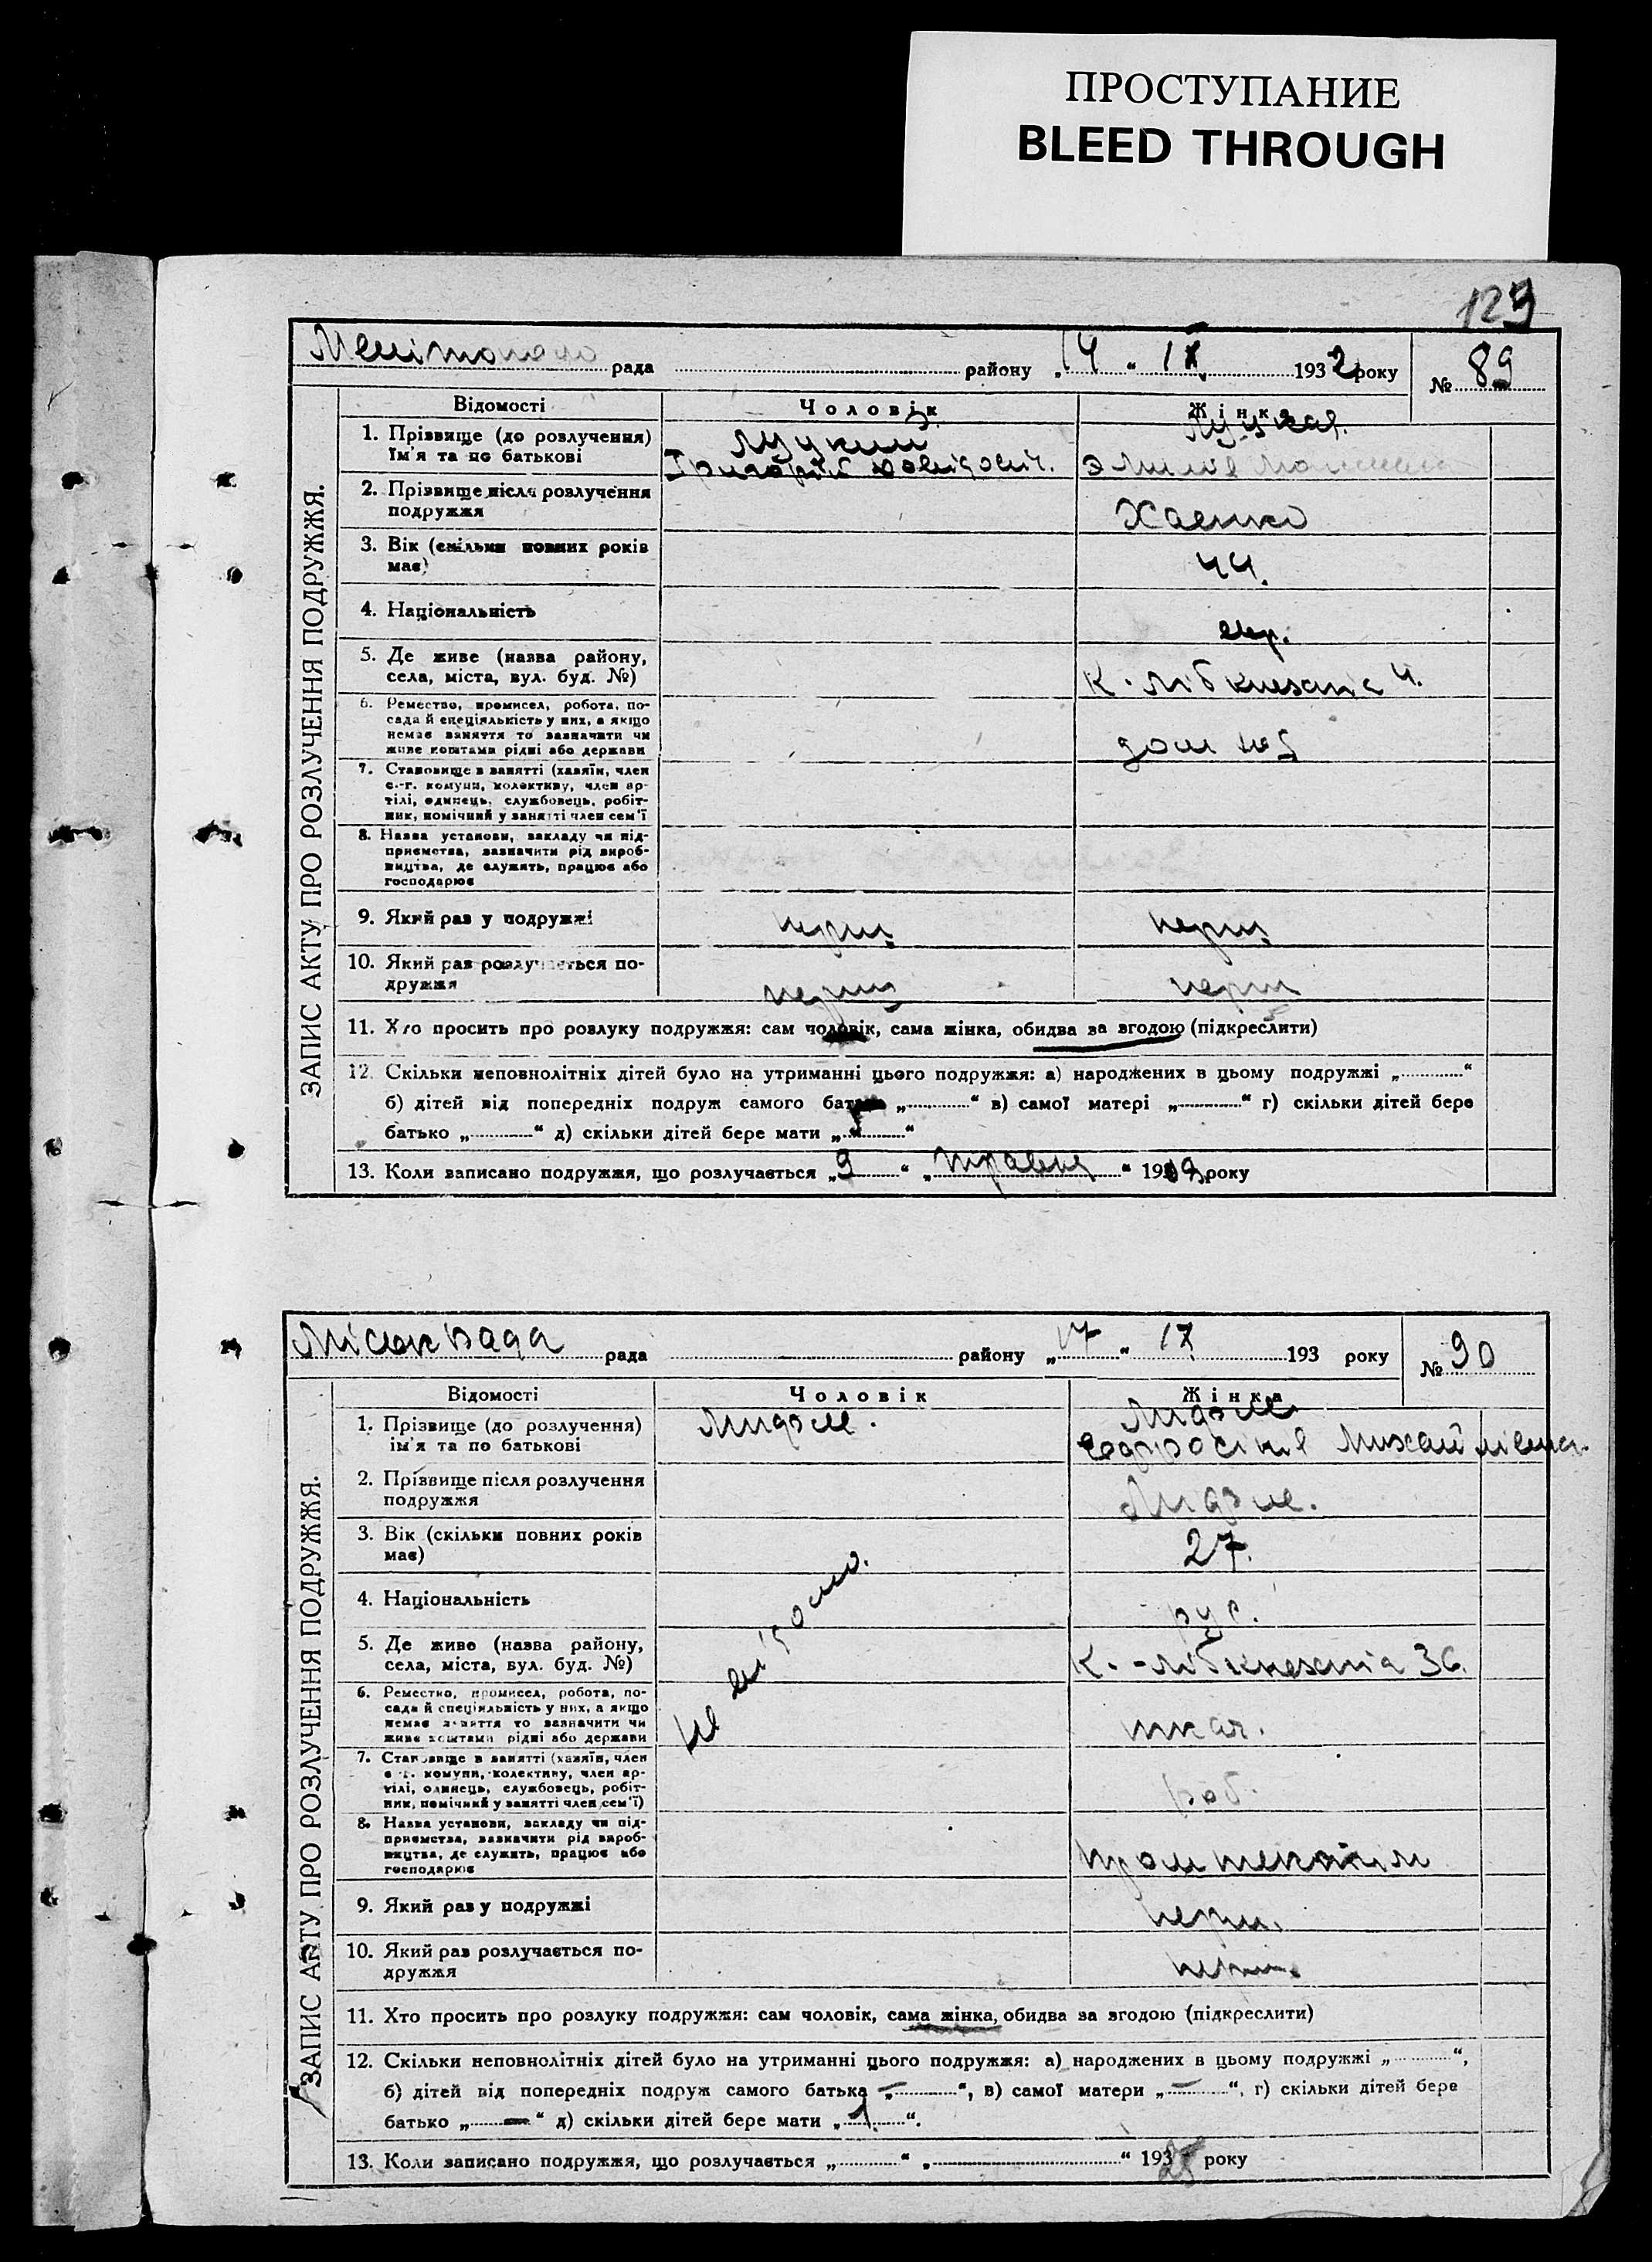 ПРОСТУПАНИЕ
BLEED THROUGH
129
ЗАПИС АКТУ ПРО РОЗЛУЧЕННЯ ПОДРУЖЖЯ.
рада района „14“ IX 1932 року № 89
Відомості Чоловік Жінка
1. Прізвище (до розлучення) Луцкий Луцкая.
Ім'я та по батькові Григорій Давідовіч.
2. Прізвище після розлучення
подружжя
3. Вік (скільки повних років 44.
має)
4. Національність евр.
5. Де живе (назва району,
села, міста, вул. буд. №) К. Лібкнехта 4.
6. Ремество, промисел, робота, по-
сада й спеціяльність у них, а якщо
немає заняття то зазначити чи дом
живе коштами рідні або держави
7. Становище в занятті (хазяїн, член
с.-г. комуни, колективу, член ар-
тілі, одинець, службовець, робіт-
ник, помічний у занятті член сем'ї
8. Назва установи, закладу чи під-
приємства, зазначити рід вироб-
ництва, де служить, працює або
господарює
9. Який раз у подружжі перш. перш.
10. Який раз розлучається по-
дружжя перш перш
11. Хто просить про розлуку подружжя: сам чоловік, сама жінка, обидва за згодою (підкреслити)
12. Скільки неповнолітніх дітей було на утриманні цього подружжя: а) народжених в цьому подружжі „ “
б) дітей від попередніх подруж самого батька „ “ в) самої матері „ “ г) скільки дітей бере
батько „ “ д) скільки дітей бере мати „ “
13. Коли записано подружжя, що розлучається „9“ „травня“ року
ЗАПИС АКТУ ПРО РОЗЛУЧЕННЯ ПОДРУЖЖЯ.
Міськрада рада району „17“ IX 193 року № 90
Відомості Чоловік Жінка
1. Прізвище (до розлучення)
ім'я та по батькові Михайлівна.
2. Прізвище після розлучення
подружжя
3. Вік (скільки повних років 27.
має)
4. Національність рус.
5. Де живе (назва району,
села, міста, вул. буд. №) Не відомо. К.-Лібкнехта 36.
6. Ремество, промисел, робота, по-
сада й спеціяльність у них, а якщо
немає заняття то зазначити чи ткач.
живе коштами рідні або держави
7. Становище в занятті (хазяїн, член
с.-г. комуни, колективу, член ар-
тілі, одинець, службовець, робіт- роб.
ник, помічний у занятті член сем'ї)
8. Назва установи, закладу чи під-
приємства, зазначити рід вироб-
ництва, де служить, працює або
господарює
9. Який раз у подружжі перш.
10. Який раз розлучається по-
дружжя перш.
11. Хто просить про розлуку подружжя: сам чоловік, сама жінка, обидва за згодою (підкреслити)
12. Скільки неповнолітніх дітей було на утриманні цього подружжя: а) народжених в цьому подружжі „ “,
б) дітей від попередніх подруж самого батька „—“, в) самої матери „—“, г) скільки дітей бере
батько „—“ д) скільки дітей бере мати „1“.
13. Коли записано подружжя, що розлучається „ “ „ “ року